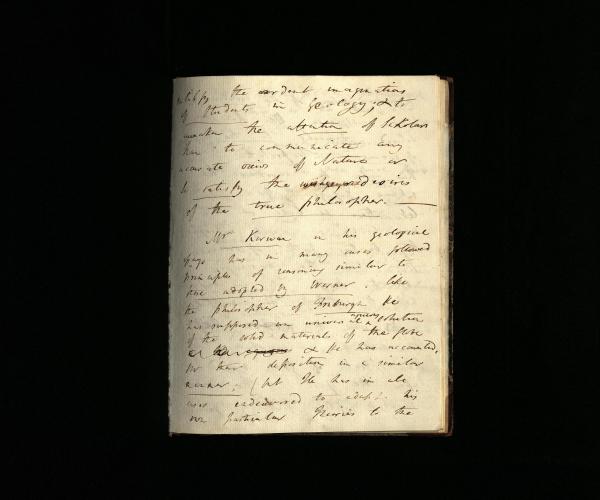 satisfy the ardent imaginations
of students in Geology; & to
awaken the attention of Scholars
than to communicate any
accurate views of Nature or
to satisfy the desires
of the true philosopher. —
Mr Kirwan in his geological
Essays has in many cases followed
principles of reasoning similar to
those adopted by Werner. like
the philosopher of Freiburgh he
has supposed an universal aqueous solution
of the solid materials of the globe
& he has accounted,
for their deposition in a similar
manner; but He has in all
cases endeavoured to adapt his
own particular theories to the